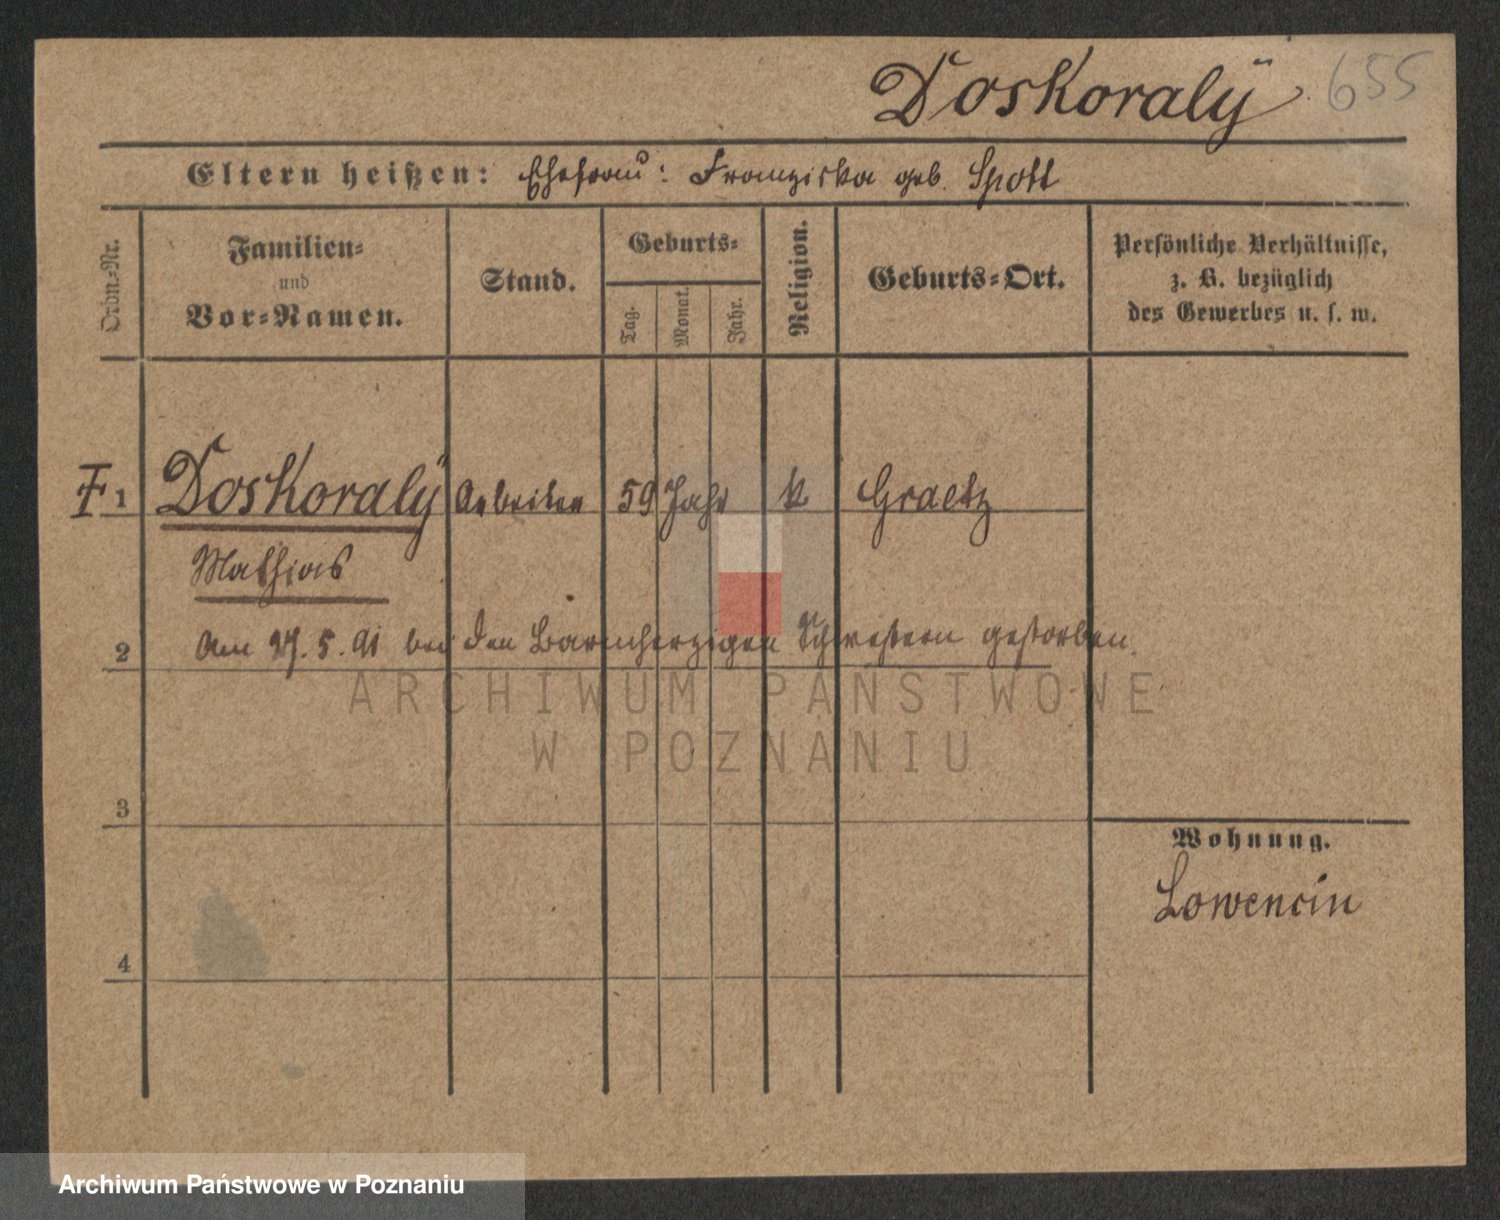 Doskoralÿ 655
Eltern heißen: Ehefrau: Franziska geb. Spott
Ordn.-Nr.
Familien-
und
Vor-Namen.
Stand.
Geburts-
Tag.
Monat.
Jahr.
Religion.
Geburts-Ort.
Persönliche Verhältnisse,
z. B. bezüglich
des Gewerbes u. s. w.
1 Doskoralÿ Arbeiter 59 Jahr k Graetz
Mathias
2 Am 27. 5. 91 bei den Barmherzigen Schwestern gestorben.
ARCHIWUM PAŃSTWOWE
W POZNANIU
3
Wohnung.
Lowencin
4
Archiwum Państwowe w Poznaniu